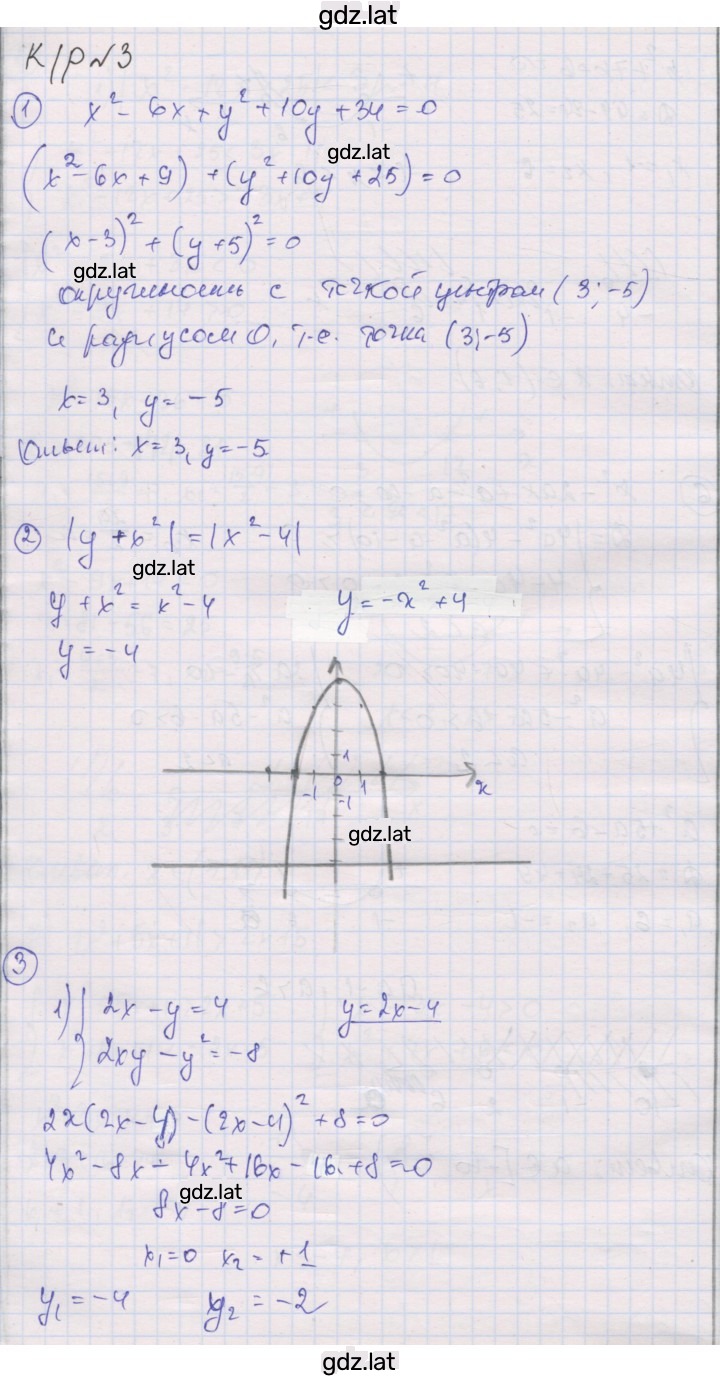 gdz.lat
К/Р №3
① x² - 6x + y² + 10y + 34 = 0
gdz.lat
(x² - 6x + 9) + (y² + 10y + 25) = 0
(x - 3)² + (y + 5)² = 0
gdz.lat
окружность с точкой центром (3; -5)
и радиусом 0, т.е. точка (3; -5)
x = 3, y = -5
Ответ: x = 3, y = -5
② |y + x²| = |x² - 4|
gdz.lat
y + x² = x² - 4 y = -x² + 4
y = -4
1
-1 0 1 x
-1
gdz.lat
③
1) { 2x - y = 4 y = 2x - 4
2xy - y² = -8
2x(2x - 4) - (2x - 4)² + 8 = 0
4x² - 8x - 4x² + 16x - 16 + 8 = 0
gdz.lat
8x - 8 = 0
x₁ = 0 x₂ = +1
y₁ = -4 y₂ = -2
gdz.lat